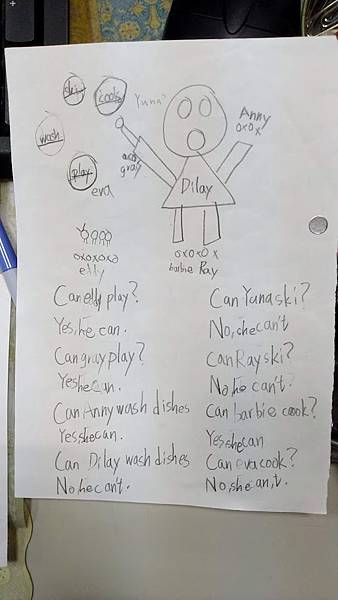 ski
cook
Yuna
wash
play
eva
gray
Anny
oxox
Dilay
oxoxoxo
elly
oxoxox
barbie Ray
Can elly play?
Yes, he can.
Can gray play?
Yes he can.
Can Anny wash dishes
Yes she can.
Can Dilay wash dishes
No, he can't.
Can Yuna ski?
No, she can't
Can Ray ski?
No he can't.
Can barbie cook?
Yes she can
Can eva cook?
No, she can,t.